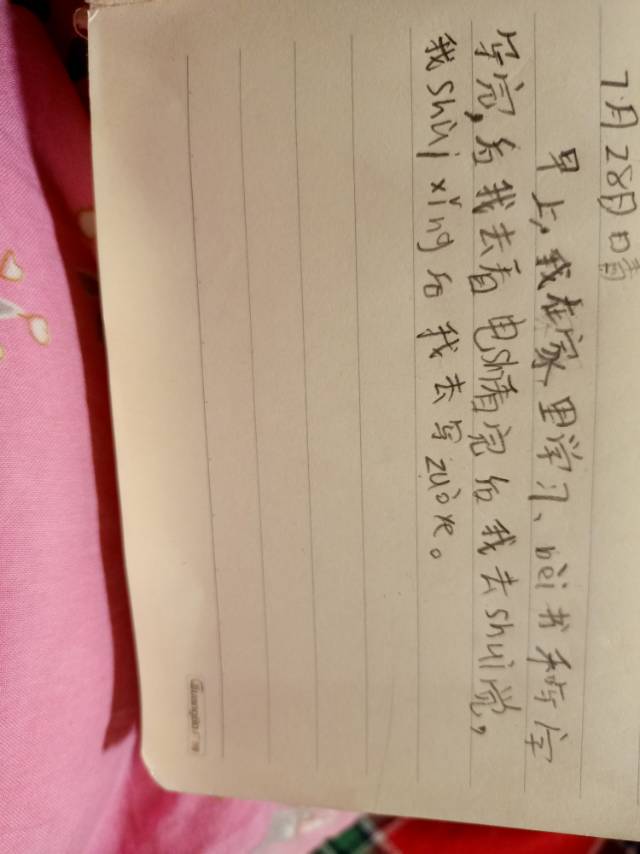 7月28日 晴
早上,我在家里学习、bèi书和写字
写完,后我去看电shì看完后我去shuì觉,
我shuì xǐng后我去写zuòye。